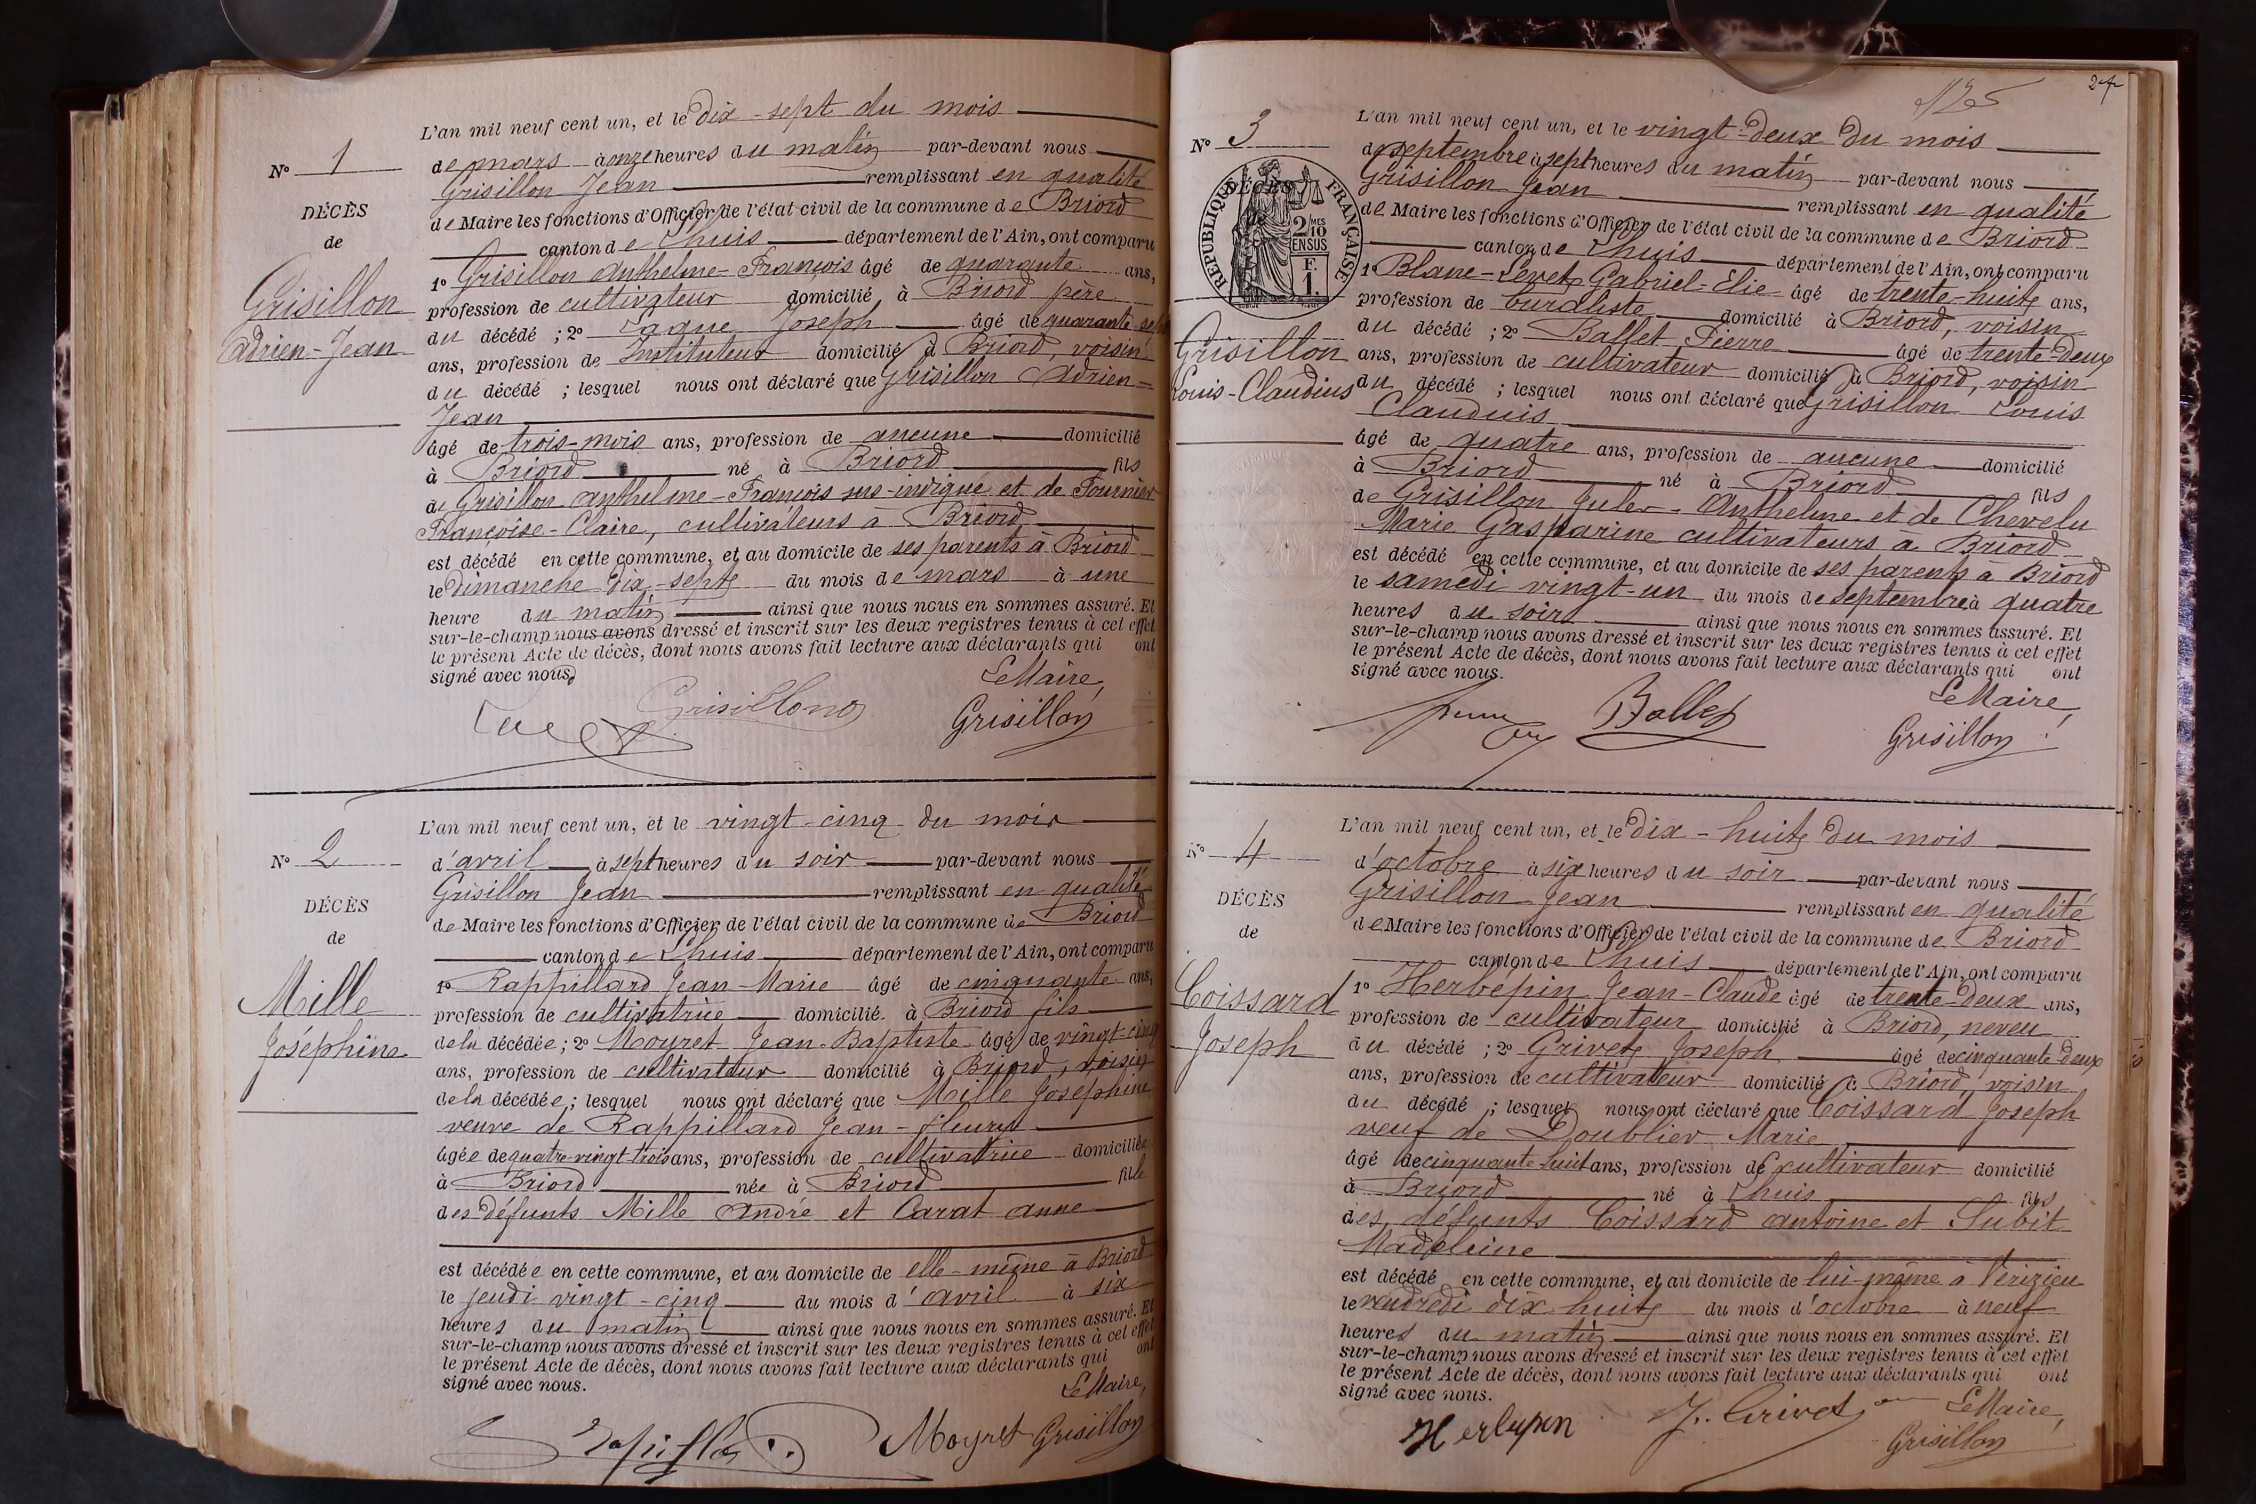 N° 1
DÉCÈS
de
Grisillon
Adrien-Jean
L'an mil neuf cent un, et le dix-sept du mois
de mars à onze heures du matin par-devant nous
Grisillon Jean remplissant en qualité
de Maire les fonctions d'Officier de l'état civil de la commune de Briord
canton de Lhuis département de l'Ain, ont comparu
1° Grisillon Anthelme-François âgé de quarante ans,
profession de cultivateur domicilié à Briord père
du décédé ; 2° Joseph âgé de quarante sept
ans, profession de Instituteur domicilié à Briord, voisin
du décédé ; lesquel nous ont déclaré que Grisillon Adrien-
Jean
âgé de trois mois ans, profession de aucune domicilié
à Briord né à Briord fils
de Grisillon Anthelme-François sus-indiqué et de Fournier
Françoise-Claire, cultivateurs à Briord,
est décédé en cette commune, et au domicile de ses parents à Briord
le Dimanche dix-sept du mois de mars à une
heure du matin ainsi que nous nous en sommes assuré. Et
sur-le-champ nous avons dressé et inscrit sur les deux registres tenus à cet effet
le présent Acte de décès, dont nous avons fait lecture aux déclarants qui ont
signé avec nous.
Le Maire,
Grisillon
Grisillon
N° 2
DÉCÈS
de
Mille
Joséphine
L'an mil neuf cent un, et le vingt-cinq du mois
d'avril à sept heures du soir par-devant nous
Grisillon Jean remplissant en qualité
de Maire les fonctions d'Officier de l'état civil de la commune de Briord
canton de Lhuis département de l'Ain, ont comparu
1° Rappillard Jean-Marie âgé de cinquante ans,
profession de cultivatrice domicilié à Briord fils
de la décédée ; 2° Moyret Jean-Baptiste âgé de vingt-cinq
ans, profession de cultivateur domicilié à Briord, voisin
de la décédée ; lesquel nous ont déclaré que Mille Joséphine
veuve de Rappillard Jean-Fleury
âgée de quatre-vingt-trois ans, profession de cultivatrice domiciliée
à Briord née à Briord fille
des défunts Mille André et Carat Anne
est décédée en cette commune, et au domicile de elle-même à Briord
le jeudi vingt-cinq du mois d'avril à six
heures du matin ainsi que nous nous en sommes assuré. Et
sur-le-champ nous avons dressé et inscrit sur les deux registres tenus à cet effet
le présent Acte de décès, dont nous avons fait lecture aux déclarants qui ont
signé avec nous.
Le Maire,
Moyret Grisillon
N° 3
RÉPUBLIQUE FRANÇAISE
DÉCÈS
2 MES
10
EN SUS
F.
1.
Grisillon
Louis-Claudius
L'an mil neuf cent un, et le vingt-deux du mois
de septembre à sept heures du matin par-devant nous
Grisillon Jean remplissant en qualité
de Maire les fonctions d'Officier de l'état civil de la commune de Briord
canton de Lhuis département de l'Ain, ont comparu
1° Blanc-Levet Gabriel-Elie âgé de trente-huit ans,
profession de buraliste domicilié à Briord, voisin
du décédé ; 2° Ballet Pierre âgé de trente-deux
ans, profession de cultivateur domicilié à Briord, voisin
du décédé ; lesquel nous ont déclaré que Grisillon Louis
Claudius
âgé de quatre ans, profession de aucune domicilié
à Briord né à Briord fils
de Grisillon Jules-Anthelme et de Chevelu
Marie Gasparine cultivateurs à Briord
est décédé en cette commune, et au domicile de ses parents à Briord
le samedi vingt-un du mois de septembre à quatre
heures du soir ainsi que nous nous en sommes assuré. Et
sur-le-champ nous avons dressé et inscrit sur les deux registres tenus à cet effet
le présent Acte de décès, dont nous avons fait lecture aux déclarants qui ont
signé avec nous.
Le Maire,
Ballet
Grisillon
N° 4
DÉCÈS
de
Coissard
Joseph
L'an mil neuf cent un, et le dix-huit du mois
d'octobre à six heures du soir par-devant nous
Grisillon Jean remplissant en qualité
de Maire les fonctions d'Officier de l'état civil de la commune de Briord
canton de Lhuis département de l'Ain, ont comparu
1° Herbépin Jean-Claude âgé de trente-deux ans,
profession de cultivateur domicilié à Briord, neveu
du décédé ; 2° Grivet Joseph âgé de cinquante-deux
ans, profession de cultivateur domicilié à Briord, voisin
du décédé ; lesquel nous ont déclaré que Coissard Joseph
veuf de Doublier Marie
âgé de cinquante huit ans, profession de cultivateur domicilié
à Briord né à Lhuis fils
des défunts Coissard Antoine et Subit
Madeleine
est décédé en cette commune, et au domicile de lui-même à Vérizieu
le vendredi dix-huit du mois d'octobre à neuf
heures du matin ainsi que nous nous en sommes assuré. Et
sur-le-champ nous avons dressé et inscrit sur les deux registres tenus à cet effet
le présent Acte de décès, dont nous avons fait lecture aux déclarants qui ont
signé avec nous.
Le Maire,
Herbepin J. Grivet
Grisillon